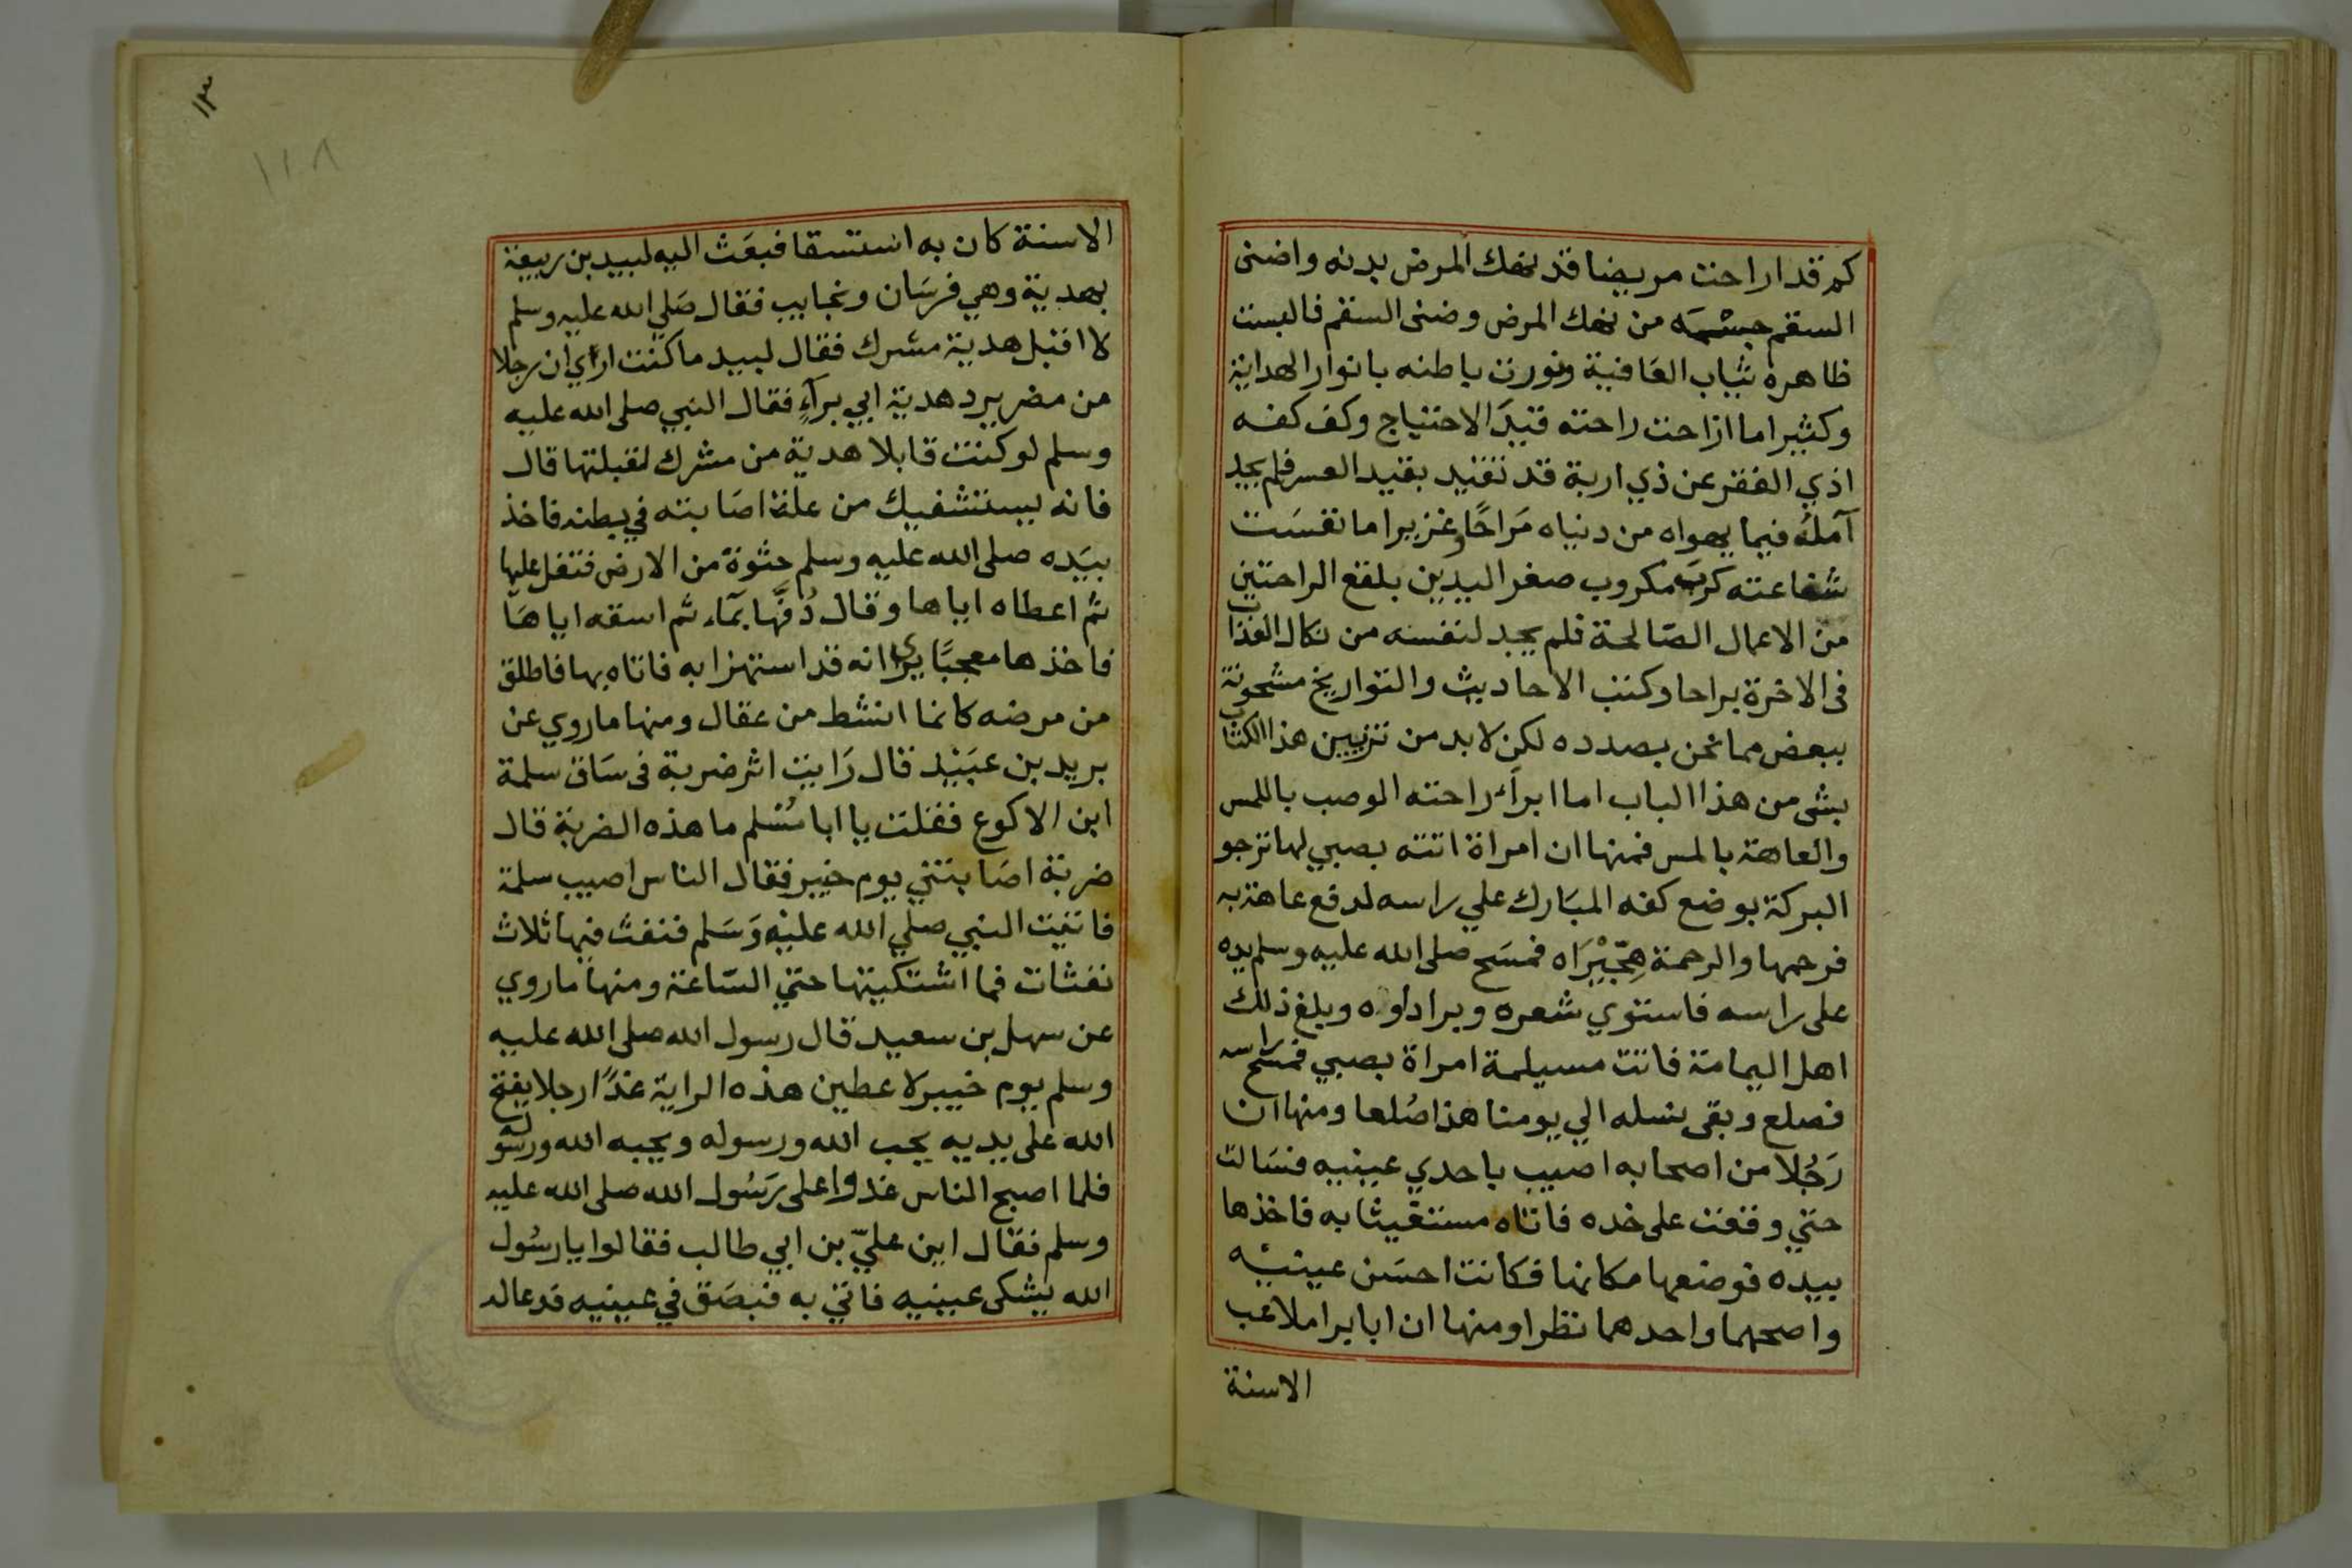 كم قد اراحت مريضا قد نهك المرض بدنه واضنى
السقم جسمه من نهك المرض وضنى السقم فالبست
ظاهره ثياب العافية ونورت باطنه بانوار الهداية
وكثيرا ما ازاحت راحته قيد الاحتياج وكف كفه
اذي الفقر عن ذي اربة قد تقيد بقيد العسر فلم يجد
آمله فيما يهواه من دنياه مَراحًا وغزيرا ما نفسَت
شفاعته كربَة مكروب صفر اليدين بلقع الراحتين
من الاعمال الصّالحة فلم يجد لنفسه من نكال العذاب
فى الاخرة براحا وكتب الاحاديث والتواريخ مشحونة
ببعض مما نحن بصدده لكن لا بد من تزيين هذا الكتاب
بشى من هذا الباب اما ابراء راحته الوصب باللمس
والعاهة بالمس فمنها ان امراة اتته بصبي لها ترجو
البركة بوضع كفه المبَارك علي راسه لدفع عاهة به
فرحمها والرحمة هِجّيْرَاه فمسَح صلى الله عليه وسلم يده
على راسه فاستوي شعره وبرا داوه وبلغ ذلك
اهل اليمامة فاتت مسيلمة امراة بصبي فمسَح راسه
فصلع وبقى نسله الي يومنا هذا صُلعا ومنها ان
رَجُلا من اصحابه اصيب باحدي عينيه فسَالت
حتي وقعت على خده فاتاه مستغيثا به فاخذها
بيده فوضعها مكانها فكانت احسَن عينيْه
واصحهما واحدهما نظرا ومنها ان ابا برا ملاعب
الاسنة
١٣
١١٨
الاسنة كان به استسقا فبعَث اليه لبيد بن ربيعة
بهدية وهي فرسَان ونجايب فقال صَلي الله عليه وسلم
لا اقبل هدية مشرك فقال لبيد ما كنت اراي ان رجلا
من مضر يرد هدية ابي برآءٍ فقال النبي صلى الله عليه
وسلم لو كنت قابلا هدية من مشرك لقبلتها قال
فانه يستشفيك من علة اصَابته في بطنه فاخذ
بيَده صلى الله عليه وسلم حثوة من الارض فتفل عليها
ثم اعطاه اياها وقال دُفّهَا بمآء ثم اسقه اياهَا
فاخذها معجبًا يرى انه قد استهزا به فاتاه بها فاطلق
من مرضه كانما انشط من عقال ومنها ما روي عن
بريد بن عبَيْد قال رَايت اثر ضربة فى سَاق سلمة
ابن الاكوع فقلت يا ابا مُسْلم ما هذه الضربة قال
ضربة اصَابتني يوم خيبر فقال الناس اصيب سلمة
فاتيت النبي صلي الله عليْه وَسَلم فنفث فيها ثلاث
نفثات فما اشتكيتها حتي السّاعة ومنها ما روي
عن سهل بن سعيد قال رسول الله صلى الله عليه
وسلم يوم خيبر لاعطين هذه الراية غدًا رجلا يفتح
الله على يديه يحب الله ورسوله ويحبه الله ورسوله
فلما اصبح الناس غدوا على رَسُول الله صلى الله عليه
وسلم فقال اين عليّ بن ابي طالب فقالوا يا رسُول
الله يشكى عينيه فاتي به فبصَق في عينيه فدعا له